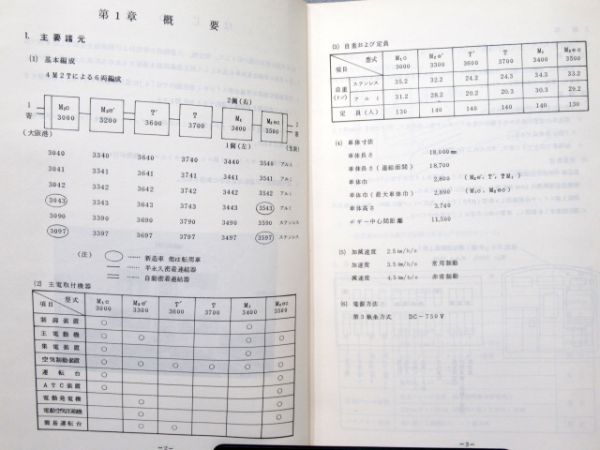 第1章 概要
1. 主要諸元
(1) 基本編成
4M2Tによる6両編成
2位(右)
1 寄
M₁c 3000
M₂e′ 3200
T′ 3600
T 3700
M₁ 3400
M₂ec 3500
2 寄
(大阪港)
1位(左)
3040 3340 3640 3740 3440 3540 アルミ
3041 3341 3641 3741 3441 3541 アルミ
3042 3342 3642 3742 3442 3542 アルミ
3043 3343 3643 3743 3443 3543 アルミ
3090 3390 3690 3790 3490 3590 ステンレス
3097 3397 3697 3797 3497 3597 ステンレス
(注) …… 新造車 他は転用車
…… 半永久密着連結器
…… 自動密着連結器
(2) 主電取付機器
項目 型式 M₁c 3000 M₂e′ 3300 T′ 3600 T 3700 M₁ 3400 M₂ec 3500
制御装置 ○ ○
主電動機 ○ ○ ○ ○
集電装置 ○ ○
空気制動装置 ○ ○ ○ ○ ○ ○
運転台 ○ ○
ATC装置 ○ ○
電動発電機 ○ ○
電動空気圧縮機 ○ ○
簡易運転台 ○ ○
−2−
(3) 自重および定員
項目 型式 M₁c 3000 M₂e′ 3300 T′ 3600 T 3700 M₁ 3400 M₂ec 3500
自重(トン) ステンレス 35.2 32.2 24.2 24.3 34.3 33.2
アルミ 31.2 28.2 20.2 20.3 30.3 29.2
定員(人) 130 140 140 140 140 130
(4) 車体寸法
車体長さ 18,000mm
車体長さ(連結面間) 18,700
車体巾 2,800 (M₂e′, T′, T, M₁)
車体巾(最大車体巾) 2,890 (M₁c, M₂ec)
車体高さ 3,740
ボギー中心間距離 11,500
(5) 加減速度 2.5km/h/s
加速度 3.5km/h/s 常用制動
減速度 4.5km/h/s 非常制動
(6) 電車方法
第3軌条方式 DC−750V
−3−